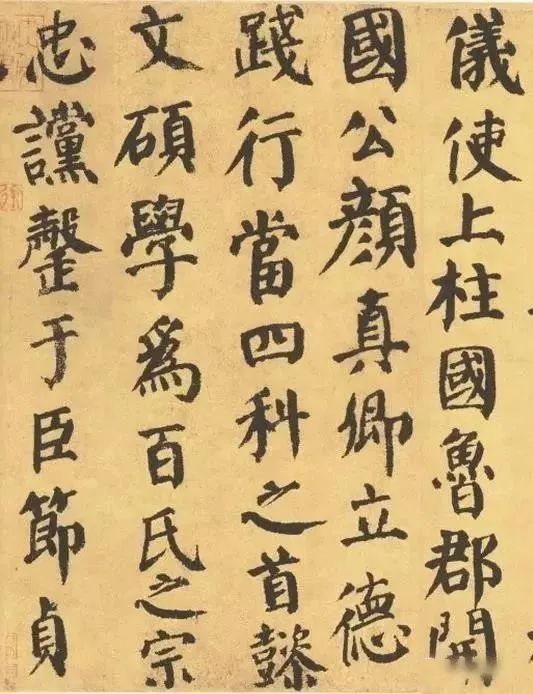 儀使上柱國魯郡開
國公顏真卿立德
踐行當四科之首懿
文碩學爲百氏之宗
忠讜罄于臣節貞